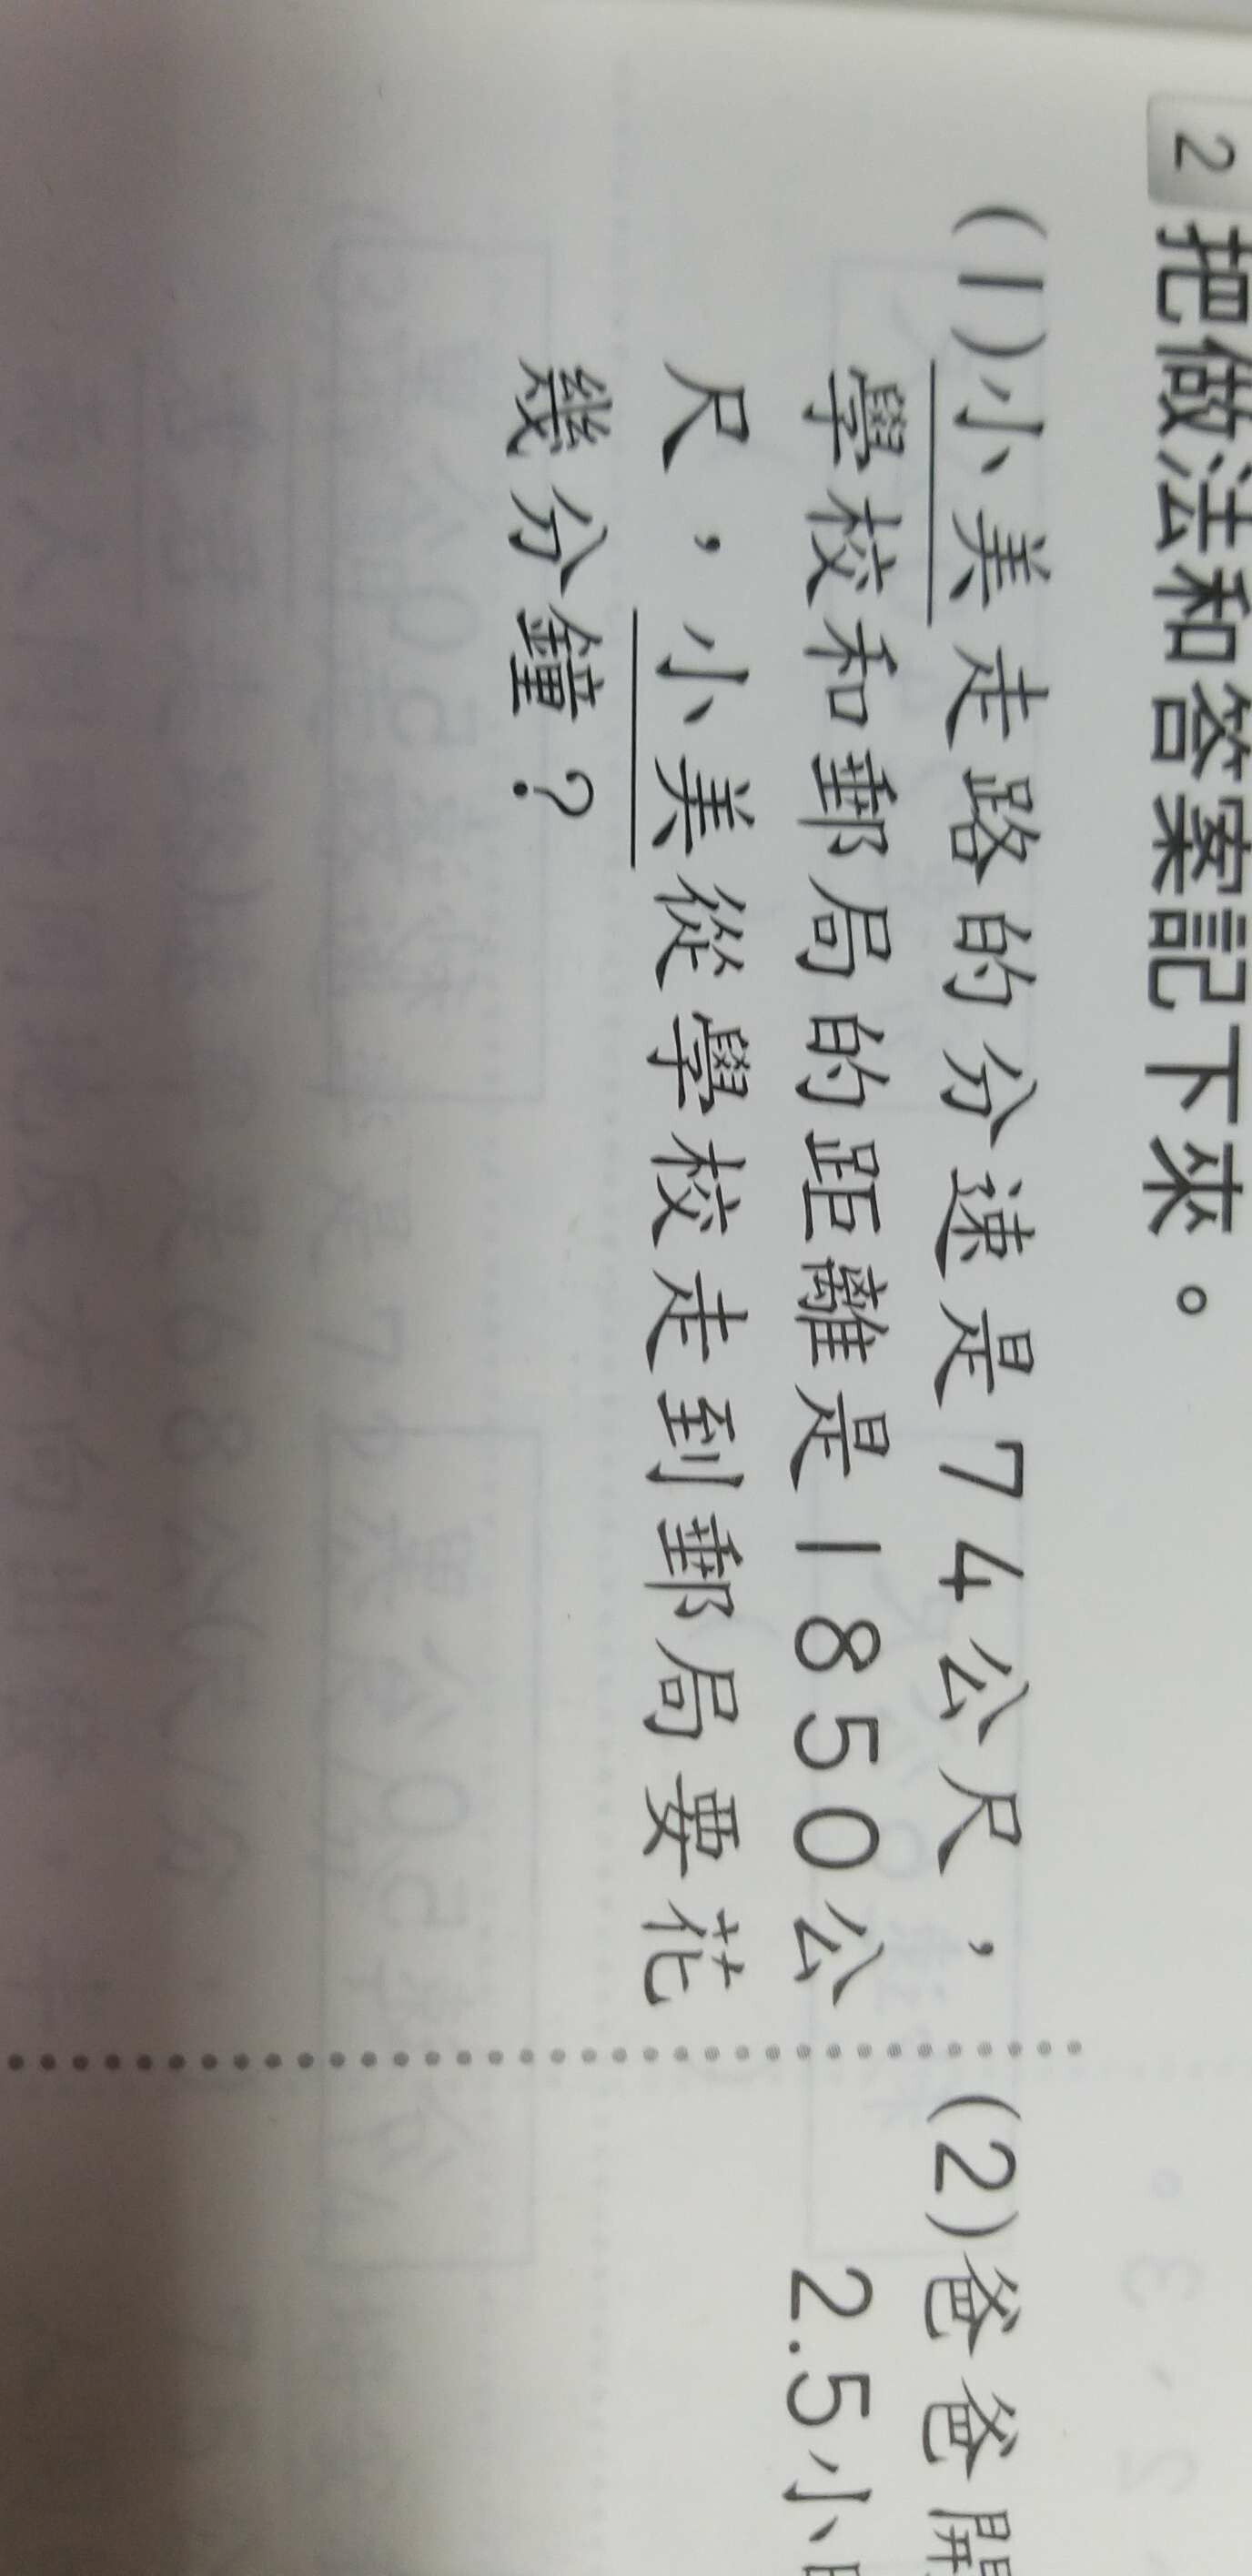 2 把做法和答案記下來。
(1)小美走路的分速是74公尺，
學校和郵局的距離是1850公
尺，小美從學校走到郵局要花
幾分鐘？
(2)爸爸開
2.5小